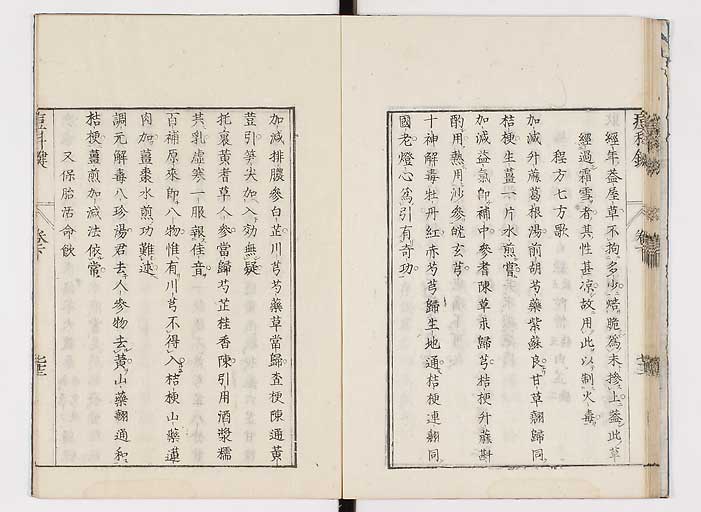 經年蓋屋草不拘多少焙脆爲末摻上蓋此草
經過霜雪者其性甚凉故用此以制火毒
程方七方歌
加減升麻葛根湯前胡芍藥紫蘇良甘草翹歸同
桔梗生薑一片水煎嘗
加減益氣卽補中參耆陳草朮歸芎桔梗升蔴斟
酌用熱用沙參
十神解毒牡丹紅赤芍芎歸生地通桔梗連翹同
國老燈心爲引有奇功
加減排膿參白芷川芎芍藥草當歸查梗陳通黃
荳引笋尖加入効無疑
托裏黃耆草人參當歸芍芷桂香陳引用酒漿糯
共乳虛寒一服報佳音
百補原來卽八物惟有川芎不得入桔梗山藥蓮
肉加薑棗水煎功難述
調元解毒八珍湯君去人參物去黃山藥翹通和
桔梗薑煎加減法依常
又保胎活命飲
痘科鍵
卷下